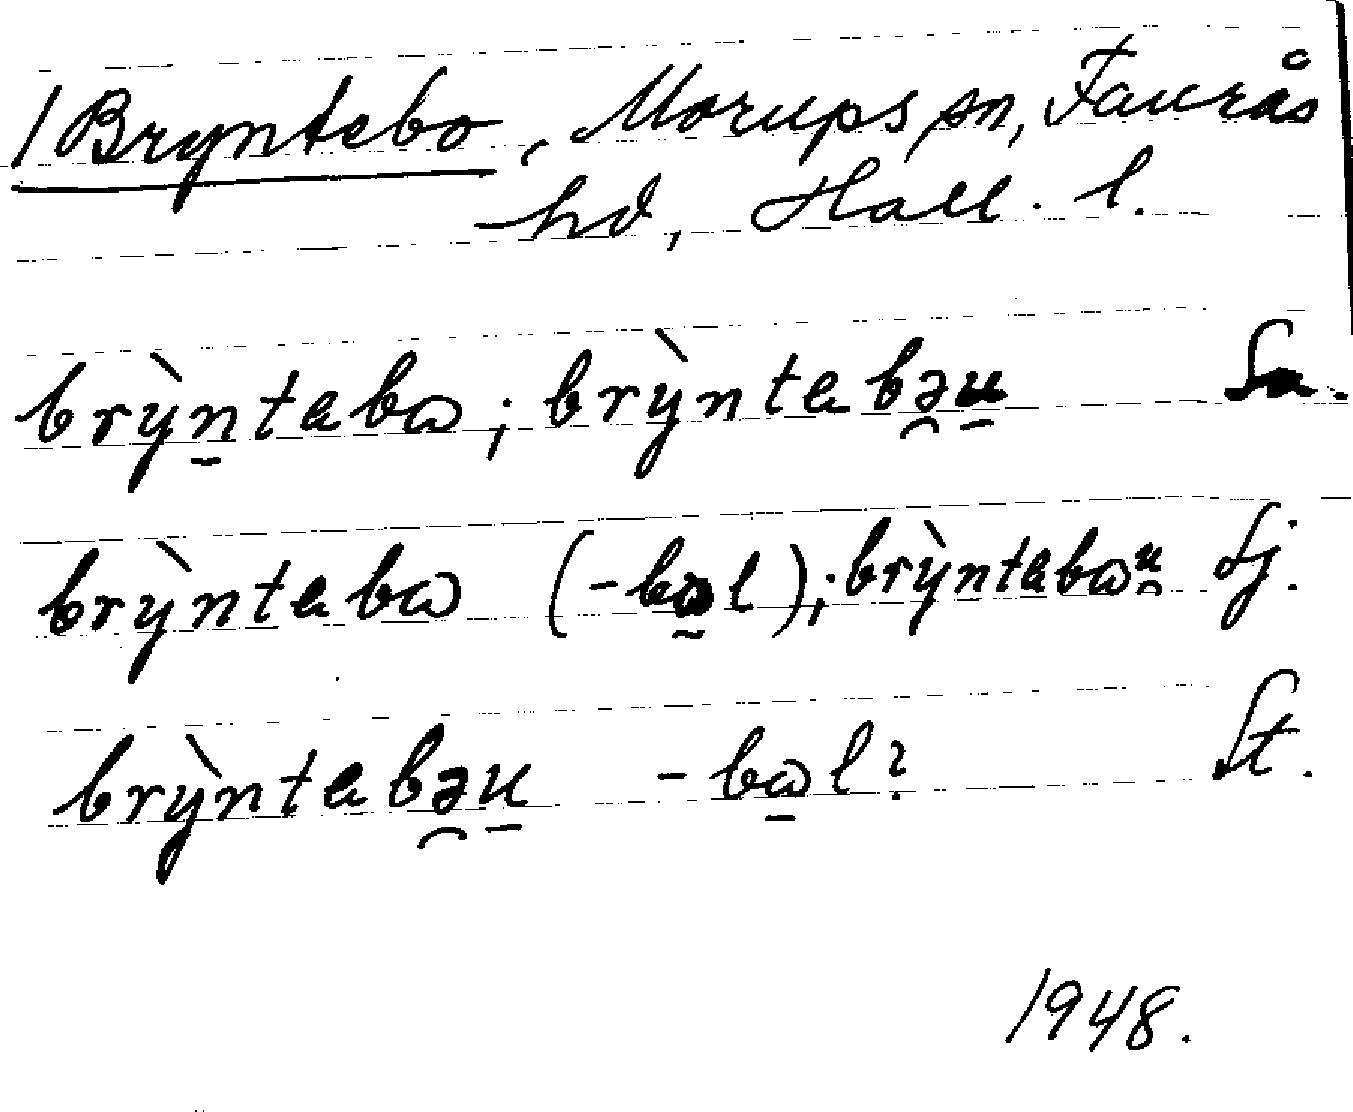 /Bryntebo, Morups sn, Faurås
hd, Hall. l.
brỳn̠tebɷ; brỳntebə̯u̠ Sn.
brỳntebɷ (-bɷ̰l); brỳntebɷᵘ̯ Sj.
brỳntebə̯u̠ -bɷ̠l? St.
1948.